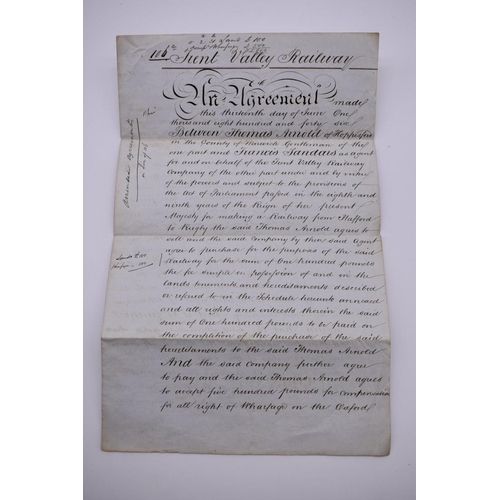 106 Trent Valley Railway
An Agreement made
this thirteenth day of June One
thousand eight hundred and forty six
Between Thomas Arnold of
in the County of Warwick Gentleman of the
one part and Francis Sandars as agent
for and on behalf of the Trent Valley Railway
Company of the other part under and by virtue
of the powers and subject to the provisions of
the Act of Parliament passed in the eighth and
ninth years of the Reign of her present
Majesty for making a Railway from Stafford
to Rugby the said Thomas Arnold agrees to
sell and the said Company by their said Agent
agree to purchase for the purposes of the said
Railway for the sum of One hundred pounds
the fee simple in possession of and in the
lands tenements and hereditaments described
or referred to in the Schedule hereunto annexed
and all rights and interests therein the said
sum of One hundred pounds to be paid on
the completion of the purchase of the said
hereditaments to the said Thomas Arnold
And the said Company further agree
to pay and the said Thomas Arnold agrees
to accept five hundred pounds for compensation
for all right of Wharfage on the Oxford